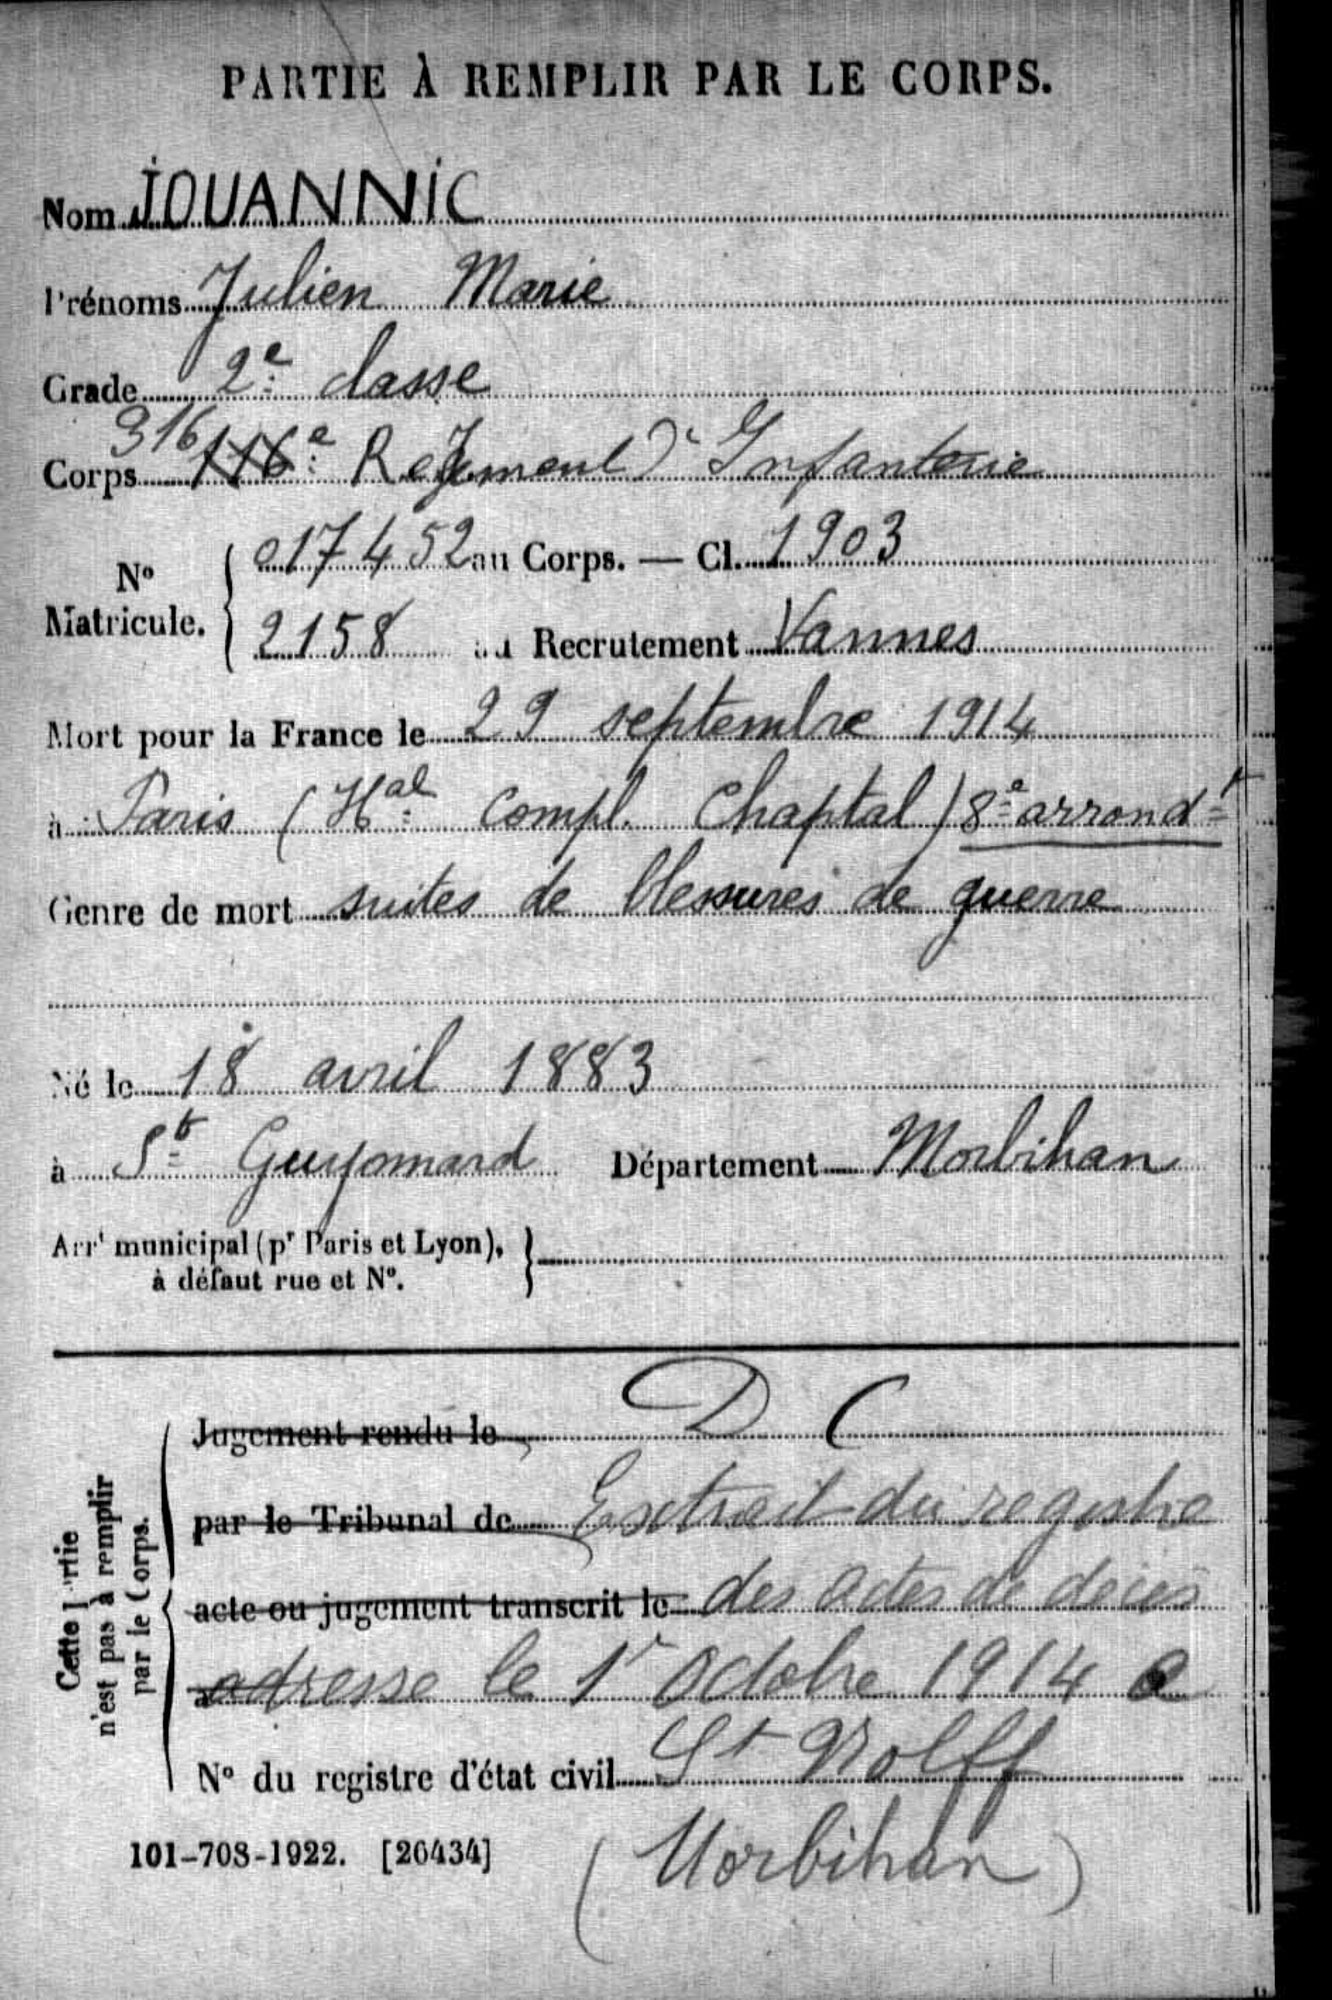 PARTIE À REMPLIR PAR LE CORPS.
Nom JOUANNIC
Prénoms Julien Marie
Grade 2e classe
Corps 316 116e Régiment d'Infanterie
No Matricule. 017452 au Corps. — Cl. 1903
2158 au Recrutement Vannes
Mort pour la France le 29 septembre 1914
à Paris (Hal Compl. Chaptal) 8e arrondt
Genre de mort suites de blessures de guerre
Né le 18 avril 1883
à St Guyomard Département Morbihan
Arrt municipal (pr Paris et Lyon),
à défaut rue et No.
Cette partie
n'est pas à remplir
par le Corps.
Jugement rendu le D C
par le Tribunal de Extrait du registre
acte ou jugement transcrit le des actes de décès
à adresse le 1r Octobre 1914 a
No du registre d'état civil St Nolff
(Morbihan)
101-708-1922. [26434]